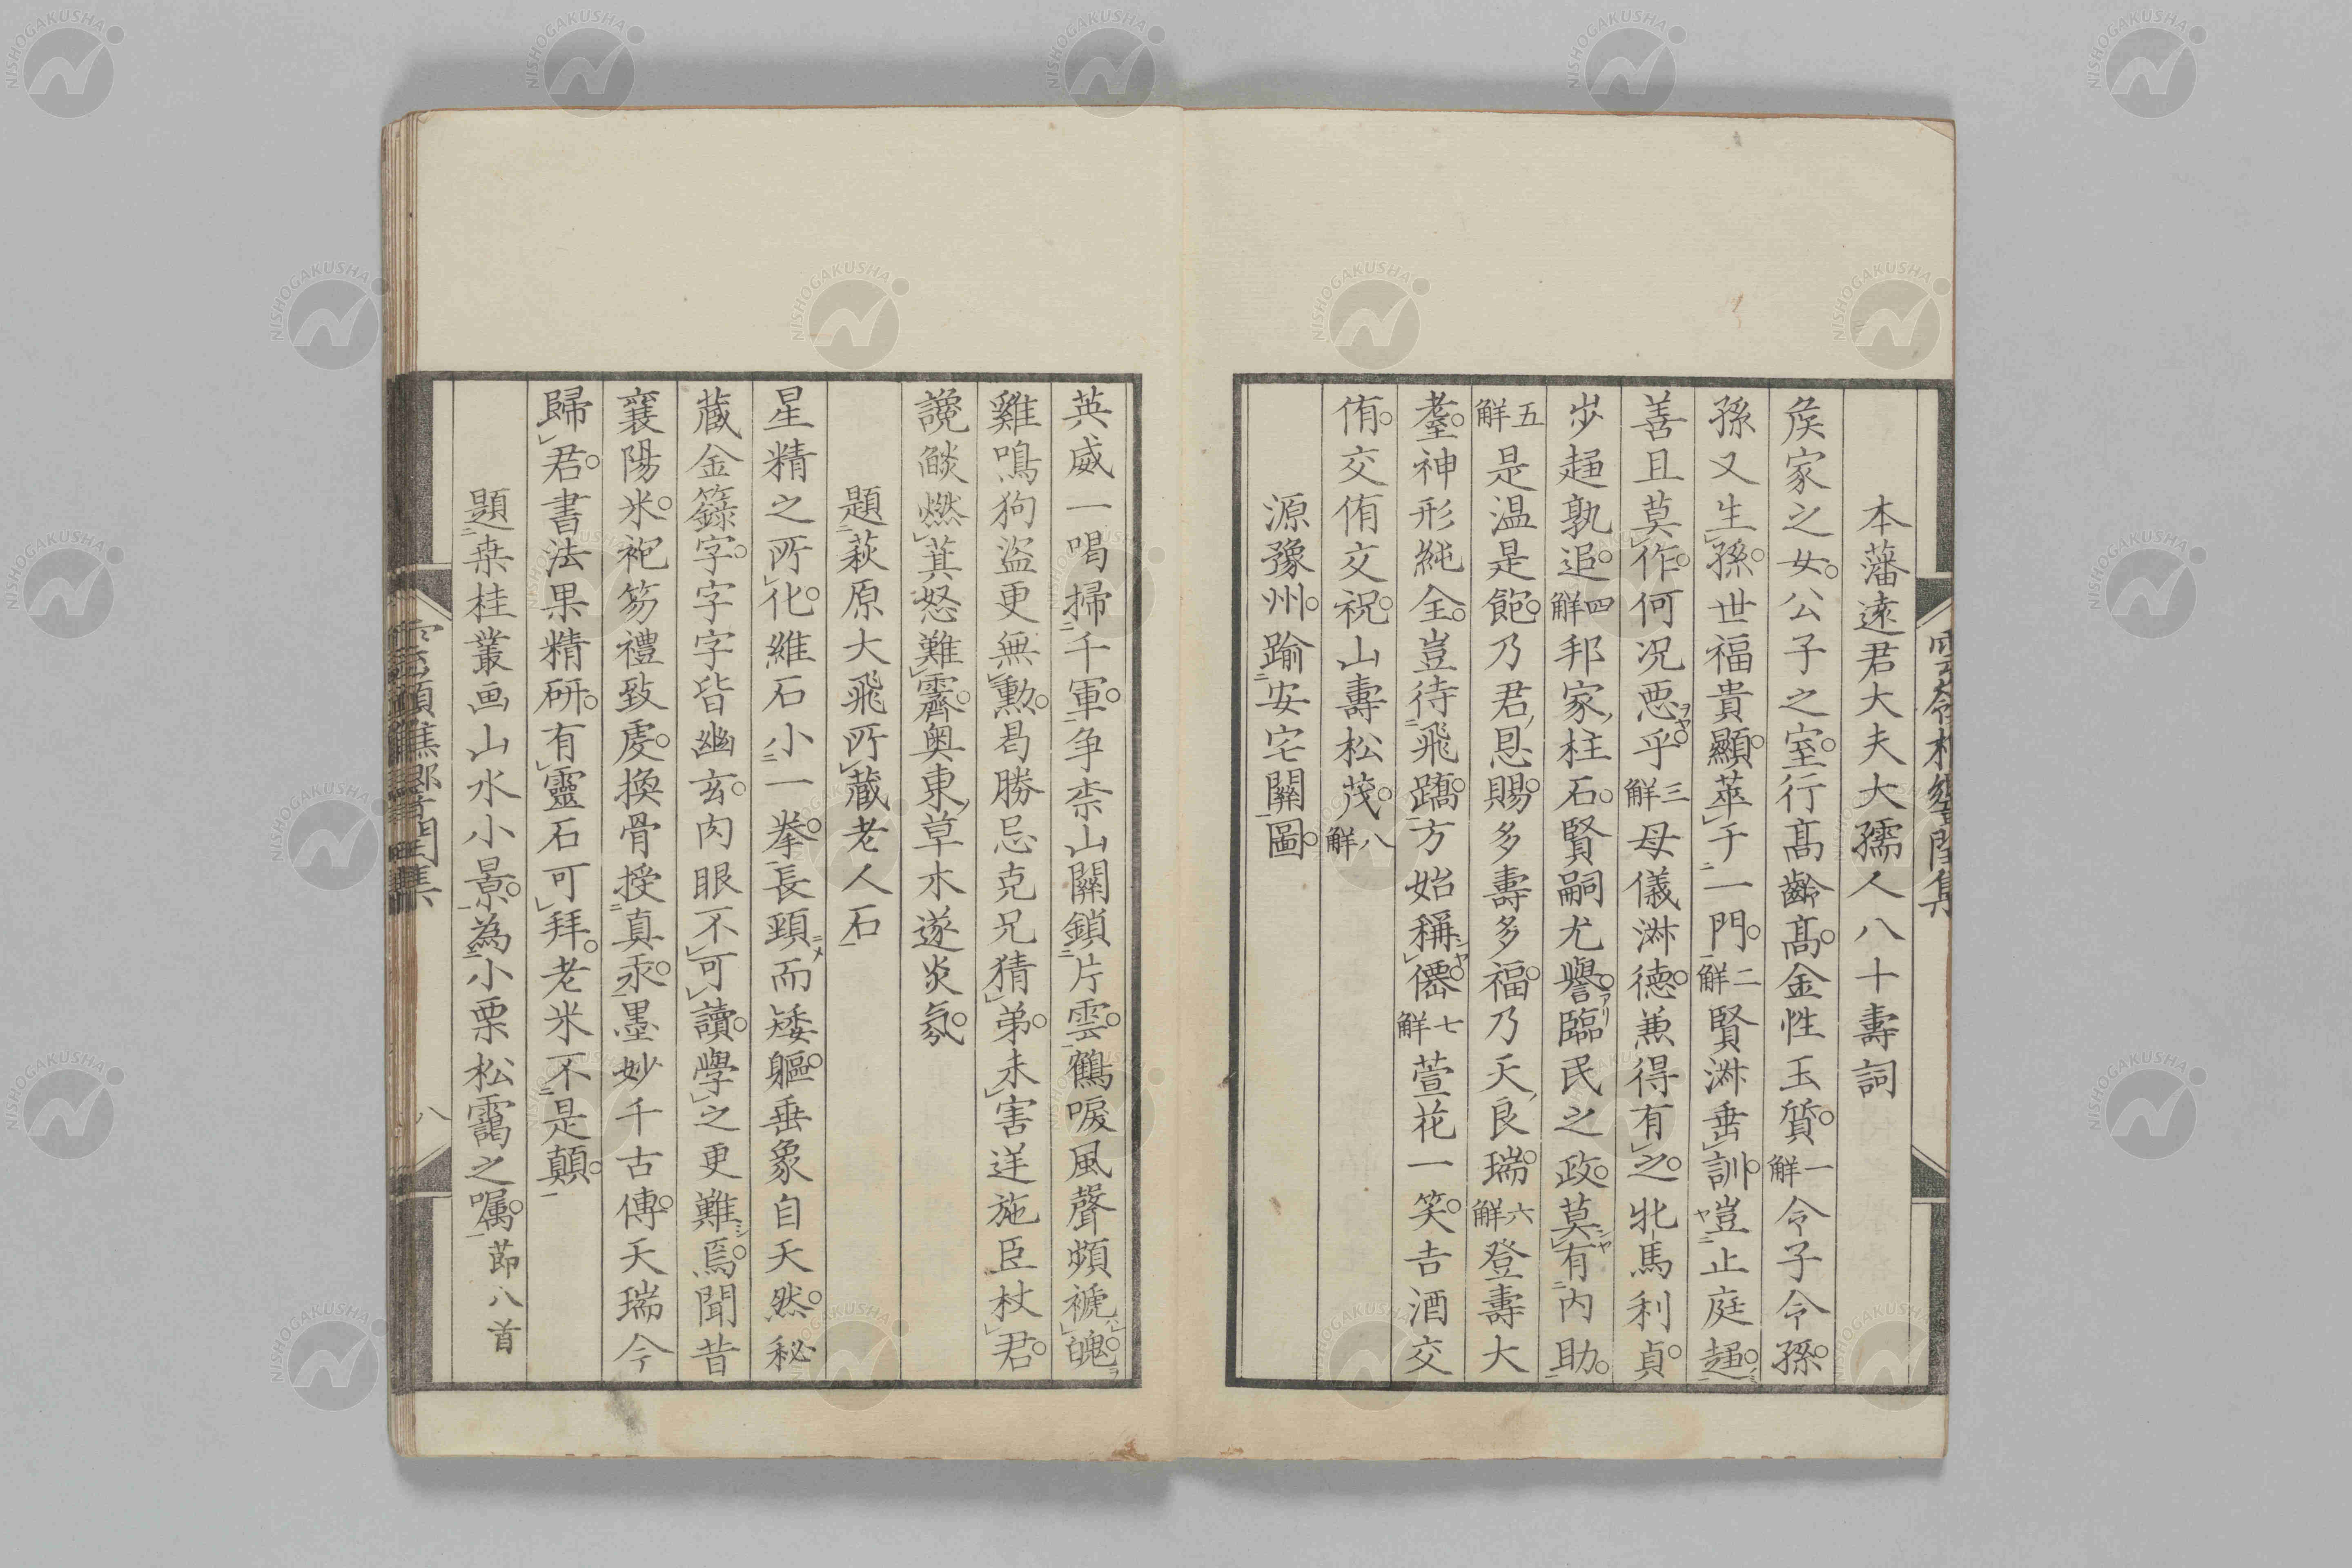 本藩遠君大夫大孺人八十壽詞
矦家之女。公子之室。行髙齡髙。金性玉質。一解令子令孫。
孫又生孫。世福貴顯。萃于一門。二解賢淋垂訓。豈止庭趨。
善且莫作。何況惡乎。三解母儀淋德。兼得有之。牝馬利貞。
步趨孰追。四解邦家柱石。賢嗣尤譽。臨民之政。莫有内助。
五解是温是飽。乃君恩賜。多壽多福。乃天良瑞。六解登壽大
耋。神形純全。豈待飛蹻。方始稱僊。七解萱花一笑。吉酒交
侑。交侑交祝。山壽松茂。八解
源豫州踰安宅關圖
英威一喝掃千軍。爭柰山關鎖片雲。鶴唳風聲頻褫魄。
雞鳴狗盗更無勲。曷勝忌克兄猜弟。未害逆施臣杖君。
讒燄燃萁怒難霽。奥東草木遂炎氛。
題萩原大飛所藏老人石
星精之所化。維石小一拳。長頭而矮軀。垂象自天然。秘
藏金籙字。字字皆幽玄。肉眼不可讀。學之更難焉。聞昔
襄陽米。袍笏禮致虔。換骨授真汞。墨妙千古傳。天瑞今
歸君。書法果精研。有靈石可拜。老米不是顛。
題桒桂叢画山水小景。為小栗松靄之囑。節八首
雲嶺樵響閏集
八